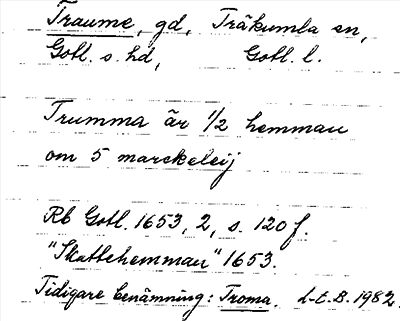 Traume, gd, Träkumla sn,
Gotl. s. hd, Gotl. l.
Trumma är 1/2 hemman
om 5 marckeleij
Rb Gotl. 1653, 2, s. 120 f.
"Skattehemman" 1653.
Tidigare benämning: Troma. L-E.B. 1982.